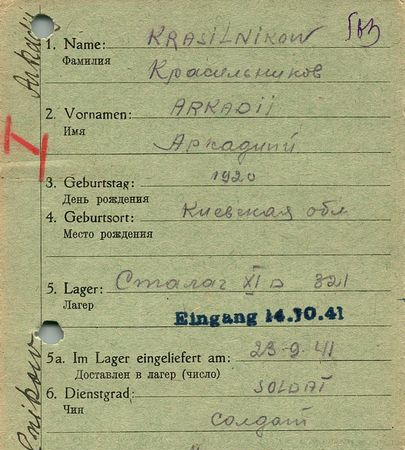 1. Name: KRASILNIKOW
Фамилия Красильников
2. Vornamen: ARKADII
Имя Аркадий
1920
3. Geburtstag:
День рождения
4. Geburtsort: Киевская обл
Место рождения
5. Lager: Сталаг XI D 321
Лагерь
Eingang 14.10.41
5a. Im Lager eingeliefert am: 23-9-41
Доставлен в лагер (число)
6. Dienstgrad: SOLDAT
Чин солдат
Arkadii